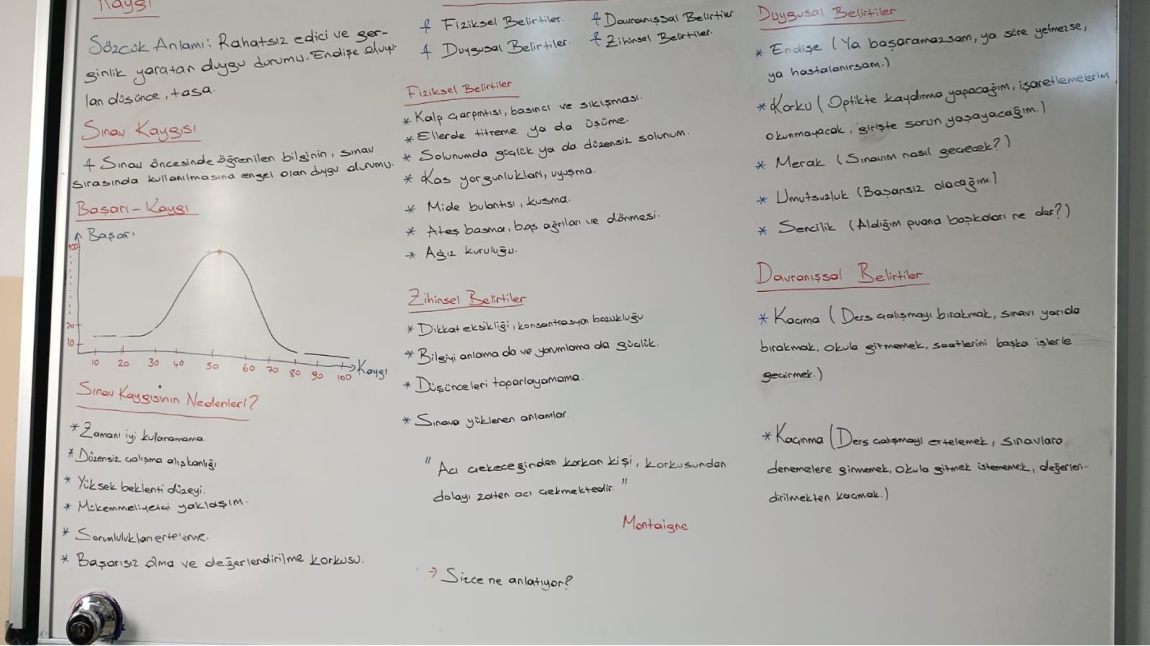 Kaygı
Sözcük Anlamı: Rahatsız edici ve ger-
ginlik yaratan duygu durumu. Endişe oluştu
lan düşünce, tasa.
Sınav Kaygısı
Sınav öncesinde öğrenilen bilginin, sınav
sırasında kullanılmasına engel olan duygu durumu.
Başarı - Kaygı
Başarı
100
20
10
10 20 30 40 50 60 70 80 90 100
Kaygı
Sınav Kaygısının Nedenleri?
* Zamanı iyi kullanamama.
* Düzensiz çalışma alışkanlığı
* Yüksek beklenti düzeyi.
* Mükemmeliyetçi yaklaşım.
* Sorumlulukları erteleme.
* Başarısız olma ve değerlendirilme korkusu.
Fiziksel Belirtiler. Davranışsal Belirtiler
Duygusal Belirtiler. Zihinsel Belirtiler.
Fiziksel Belirtiler
* Kalp çarpıntısı, basıncı ve sıkışması.
* Ellerde titreme ya da üşüme.
* Solunumda güçlük ya da düzensiz solunum.
* Kas yorgunlukları, uyuşma.
* Mide bulantısı, kusma.
* Ateş basma, baş ağrıları ve dönmesi.
* Ağız kuruluğu.
Zihinsel Belirtiler
* Dikkat eksikliği, konsantrasyon bozukluğu
* Bilgiyi anlama da ve yorumlama da güçlük.
* Düşünceleri toparlayamama.
* Sınava yüklenen anlamlar.
"Acı çekeceğinden korkan kişi, korkusundan
dolayı zaten acı çekmektedir."
Montaigne
→ Sizce ne anlatıyor?
Duygusal Belirtiler
* Endişe (Ya başaramazsam, ya süre yetmezse,
ya hastalanırsam.)
* Korku (Optikte kaydırma yapacağım, işaretlemelerim
okunmayacak, girişte sorun yaşayacağım.)
* Merak (Sınavım nasıl geçecek?)
* Umutsuzluk (Başarısız olacağım.)
* Sencilik (Aldığım puana başkaları ne der?)
Davranışsal Belirtiler
* Kaçma (Ders çalışmayı bırakmak, sınavı yarıda
bırakmak, okula gitmemek, saatlerini başka işlerle
geçirmek.)
* Kaçınma (Ders çalışmayı ertelemek, sınavlara
denemelere girmemek, okula gitmek istememek, değerlen-
dirilmekten kaçmak.)